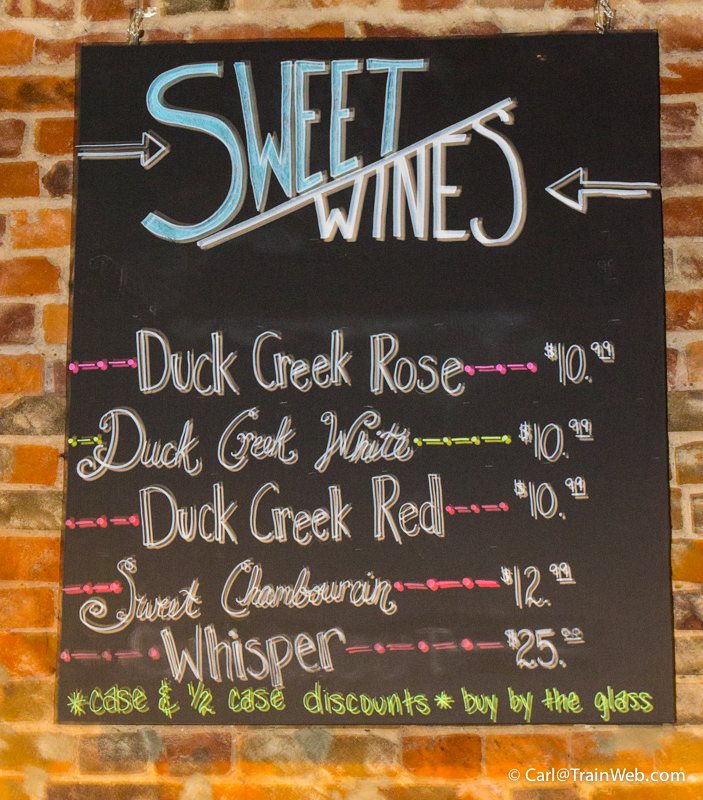 SWEET
WINES
Duck Creek Rose $10.99
Duck Creek White $10.99
Duck Creek Red $10.99
Sweet Chambourcin $12.99
Whisper $25.00
*case & 1/2 case discounts* buy by the glass
© Carl@TrainWeb.com